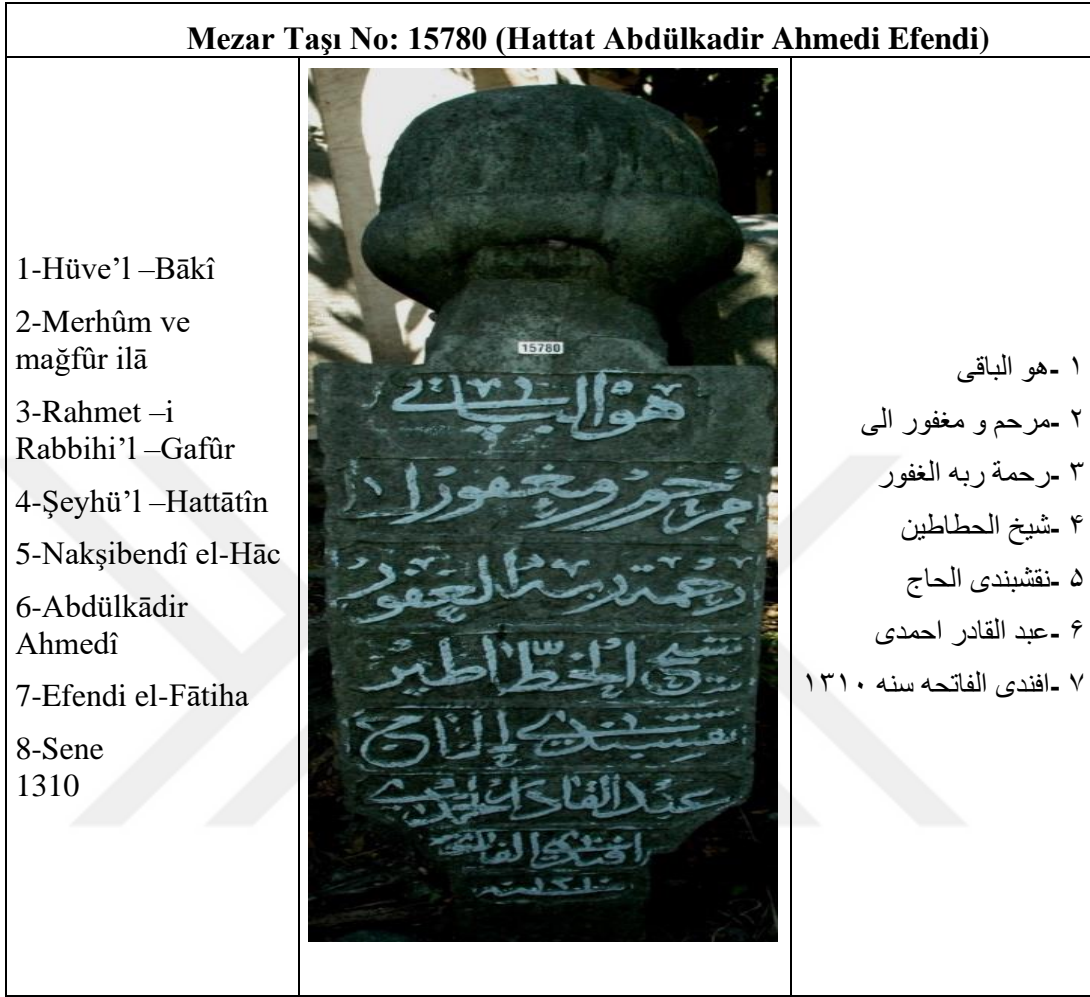 Mezar Taşı No: 15780 (Hattat Abdülkadir Ahmedi Efendi)
1-Hüve’l –Bākî
2-Merhûm ve
mağfûr ilā
3-Rahmet –i
Rabbihi’l –Gafûr
4-Şeyhü’l –Hattātîn
5-Nakşibendî el-Hāc
6-Abdülkādir
Ahmedî
7-Efendi el-Fātiha
8-Sene
1310
15780
هو الباقی
مرحوم و مغفور ا
رحمة ربه الغفور
شیخ الخطاطین
نقشبندی الحاج
عبد القادر احمدی
افندی الفاتحه
۱ -هو الباقی
۲ -مرحم و مغفور الی
۳ -رحمة ربه الغفور
۴ -شیخ الحطاطین
۵ -نقشبندی الحاج
۶ -عبد القادر احمدی
۷ -افندی الفاتحه سنه ۱۳۱۰